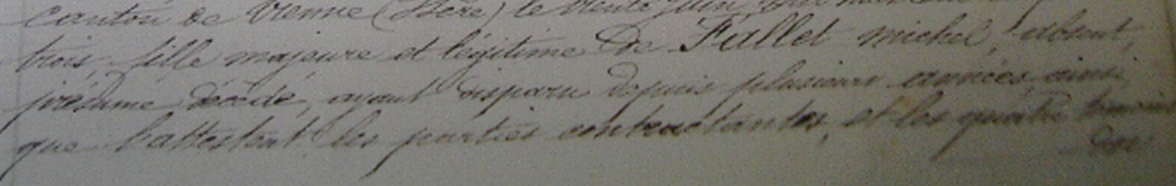 canton de Vienne (Isère) le trente juin
trois, fille majeure et légitime de Fallet michel, absent,
présumé décédé, ayant disparu depuis plusieurs années, ainsi
que l'attestent les parties contractantes, et les quatre témoins